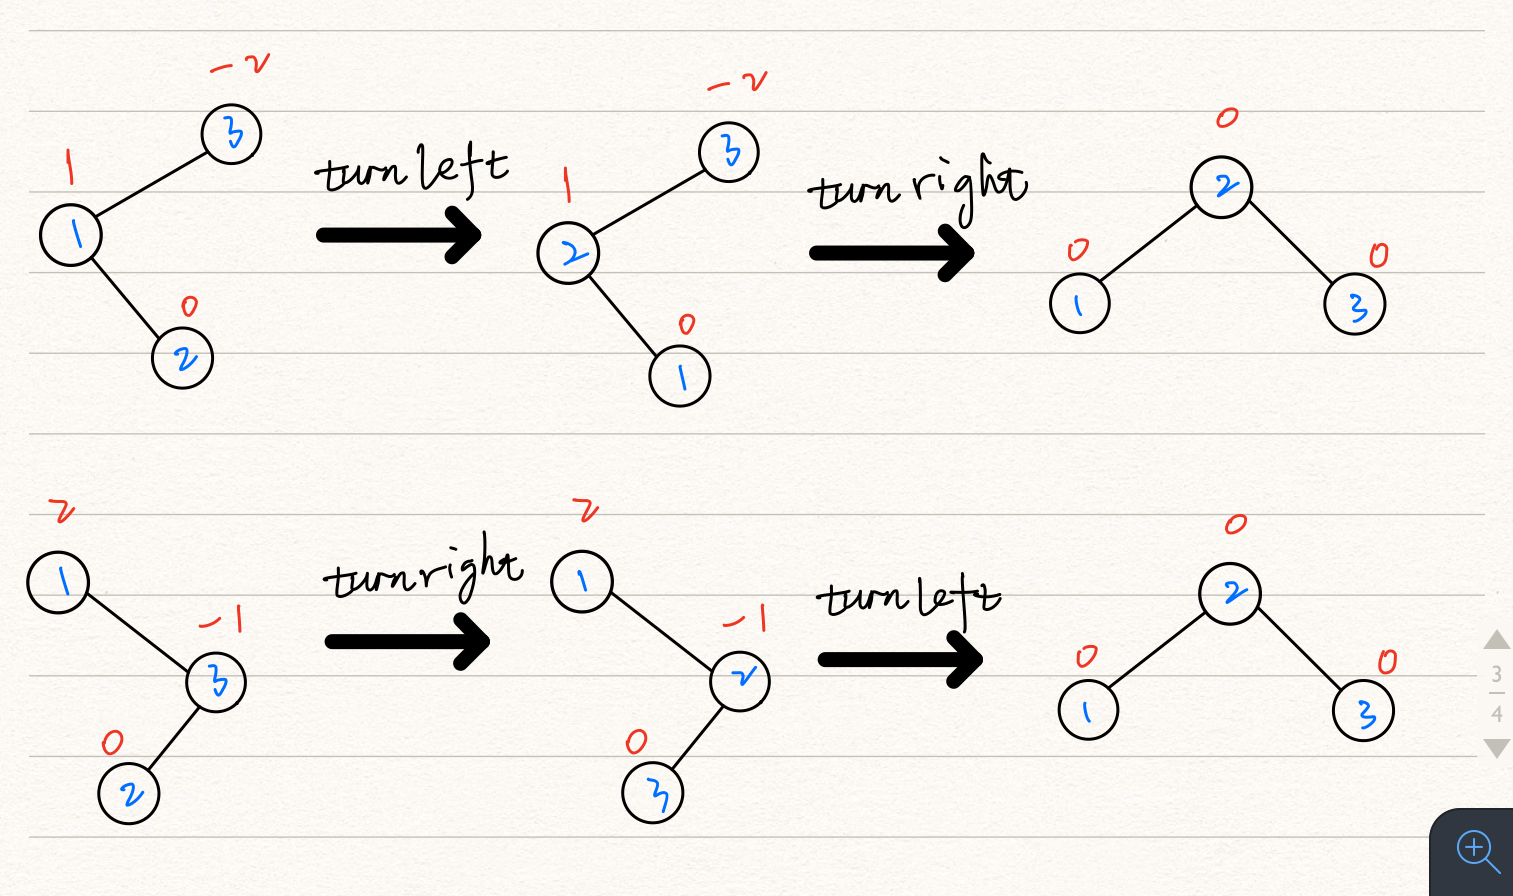 -2
3
1
1
0
2
turn left
-2
3
1
2
0
1
turn right
0
2
0
1
0
3
2
1
-1
3
0
2
turn right
2
1
-1
2
0
3
turn left
0
2
0
1
0
3
3
4